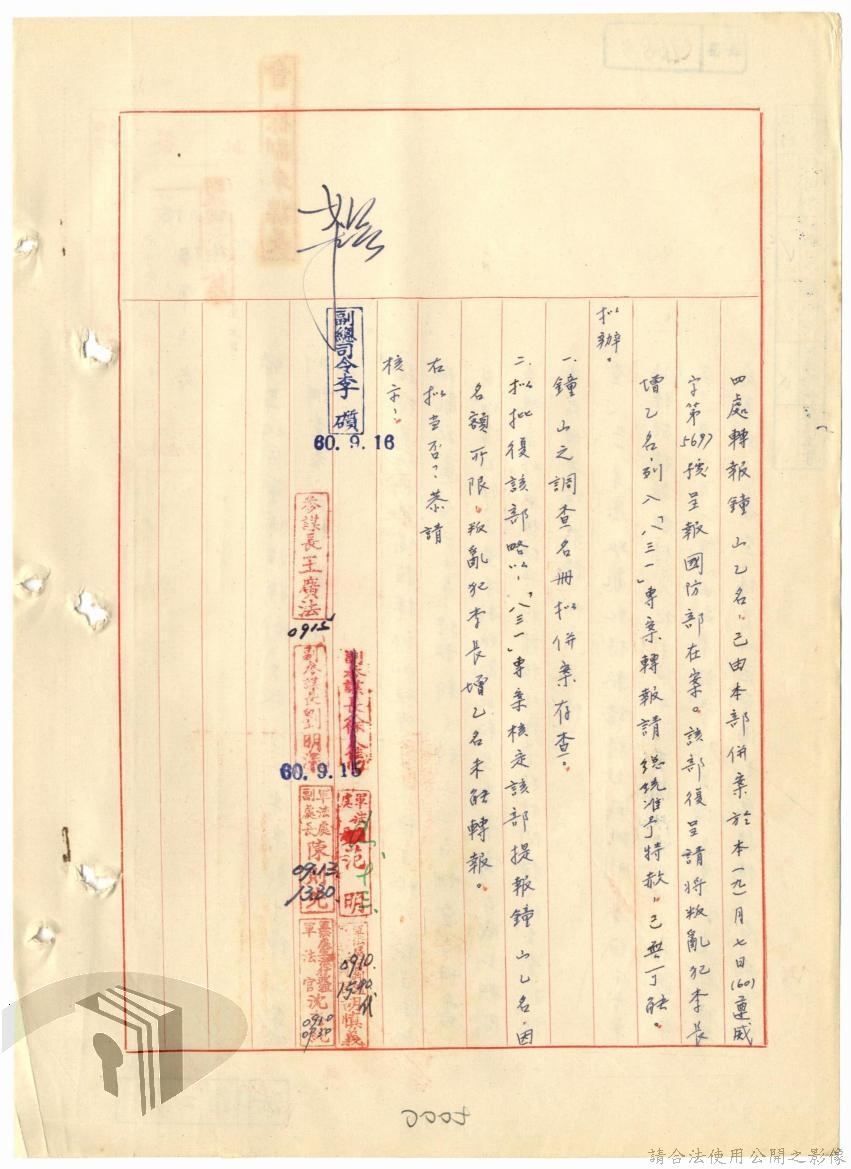 四處轉報鐘山乙名，已由本部併案於本(九)月七日(60)連威
字第5697號呈報國防部在案。該部復呈請將叛亂犯李長
增乙名，列入「八三一」專案轉報請 總統准予特赦，已無可能。
擬辦。
一、鐘山之調查名冊擬併案存查。
二、擬批復該部略以：「八三一」專案核定該部提報鐘山乙名，因
名額所限，叛亂犯李長增乙名未能轉報。
右擬當否？恭請
核示：
副總司令李
60.9.16
參謀長王廣法
0915
副參謀長劉明
60.9.15
軍法處
副處長陳
09.13
1330
軍法處
范明
0910
1540
代
軍法官沈
0910
0930
0005
請合法使用公開之影像